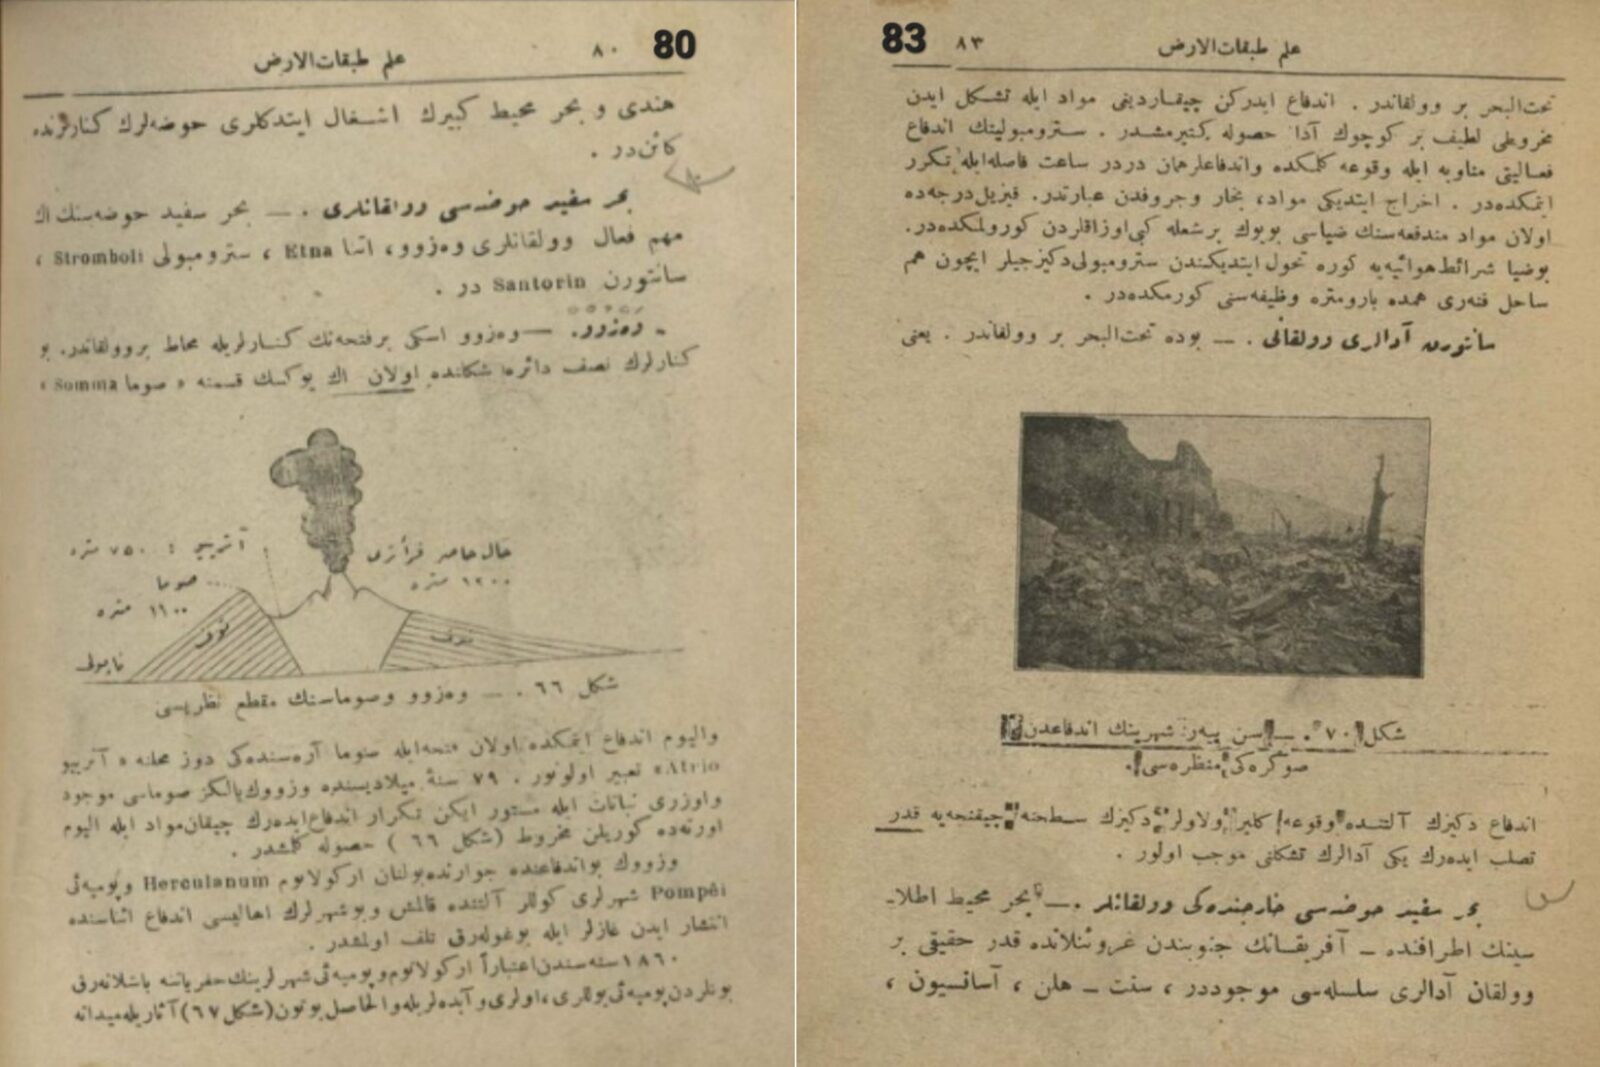 علم طبقات‌الارض
٨٠ 80
هندی و بحر محیط کبیرك اشغال ایتدکلری حوضه‌لرك کنارلرنده
کائن‌در .
بحر سفید حوضه‌سی وولقانلری . — بحر سفید حوضه‌سنك اك
مهم فعال وولقانلری وه‌زوو، اتنا Etna ، سترومبولی Stromboli ،
سانتورن Santorin در .
ـ وه‌زوو. — وه‌زوو اسکی برفتحه‌نك کنارلریله محاط بروولقاندر. بو
کنارلرك نصف دائره شکلنده اولان اك یوکسك قسمنه « صوما Somma »
آتریو : ٧٥٠ متره
حال حاضر
صوما
١٢٠٠ متره
١١٠٠ متره
توف
توف
ناپولی
شکل ٦٦ . — وه‌زوو وصوماسنك مقطع نظریسی
والیوم اندفاع اتمکده اولان فتحه‌ایله صوما آره‌سنده‌کی دوز محله « آتریو
Atrio» تعبیر اولونور . ٧٩ سنهٔ میلادیسنده وزووك یالکز صوماسی موجود
واوزری نباتات ایله مستور ایکن تکرار اندفاع ایده‌رك چیقان مواد ایله الیوم
اورته‌ده کوریلن مخروط (شکل ٦٦ ) حصوله کلمشدر .
وزووك بواندفاعنده جوارنده‌بولنان ارکولانوم Herculanum وپومپه‌ئی
Pompéi شهرلری کوللر آلتنده قالمش وبوشهرلرك اهالیسی اندفاع اثناسنده
انتشار ایدن غازلر ایله بوغوله‌رق تلف اولمشدر .
١٨٦٠ سنه‌سندن‌اعتباراً ارکولانوم‌وپومپه‌ئی شهرلرینك حفریاتنه باشلانه‌رق
بونلردن پومپه‌ئی یوللری، اولری وآبده‌لریله والحاصل بوتون(شکل٦٧) آثاریله میدانه
83 ٨٣
علم طبقات‌الارض
تحت‌البحر بر وولقاندر . اندفاع ایدرکن چیقاردینی مواد ایله تشکل ایدن
مخروطی لطیف بر کوچوك آدا حصوله کتیرمشدر . سترومبولینك اندفاع
فعالیتی مناوبه ایله وقوعه کلمکده واندفاعلرهمان دردر ساعت فاصله‌ایله تکرر
ایتمکده‌در . اخراج ایتدیکی مواد، بخار وجروفدن عبارتدر. قیزیل‌درجه‌ده
اولان مواد مندفعه‌سنك ضیاسی بویوك برشعله کبی اوزاقلردن کورولمکده‌در.
بوضیا شرائط‌هوائیه‌یه کوره تحول ایتدیکندن سترومبولی‌دکیزجیلر ایچون هم
ساحل فنه‌ری همده بارومتره وظیفه‌سنی کورمکده‌در .
سانتورن آدالری وولقانی . — بوده تحت‌البحر بر وولقاندر . یعنی
شکل ٧٠ . — سن پیه‌ر شهرینك اندفاعدن
صوکره‌کی منظره‌سی .
اندفاع دکیزك آلتنده وقوعه کلیر ولاولر دکیزك سطحنه چیقنجه‌یه قدر
تصلب ایده‌رك یکی آدالرك تشکلنی موجب اولور .
بحر سفید حوضه‌سی خارجنده‌کی وولقانلر . — بحر محیط اطلا-
سینك اطرافنده — آفریقانك جنوبندن غروئنلانده قدر حقیقی بر
وولقان آدالری سلسله‌سی موجوددر ، سنت — هلن ، آسانسیون ،